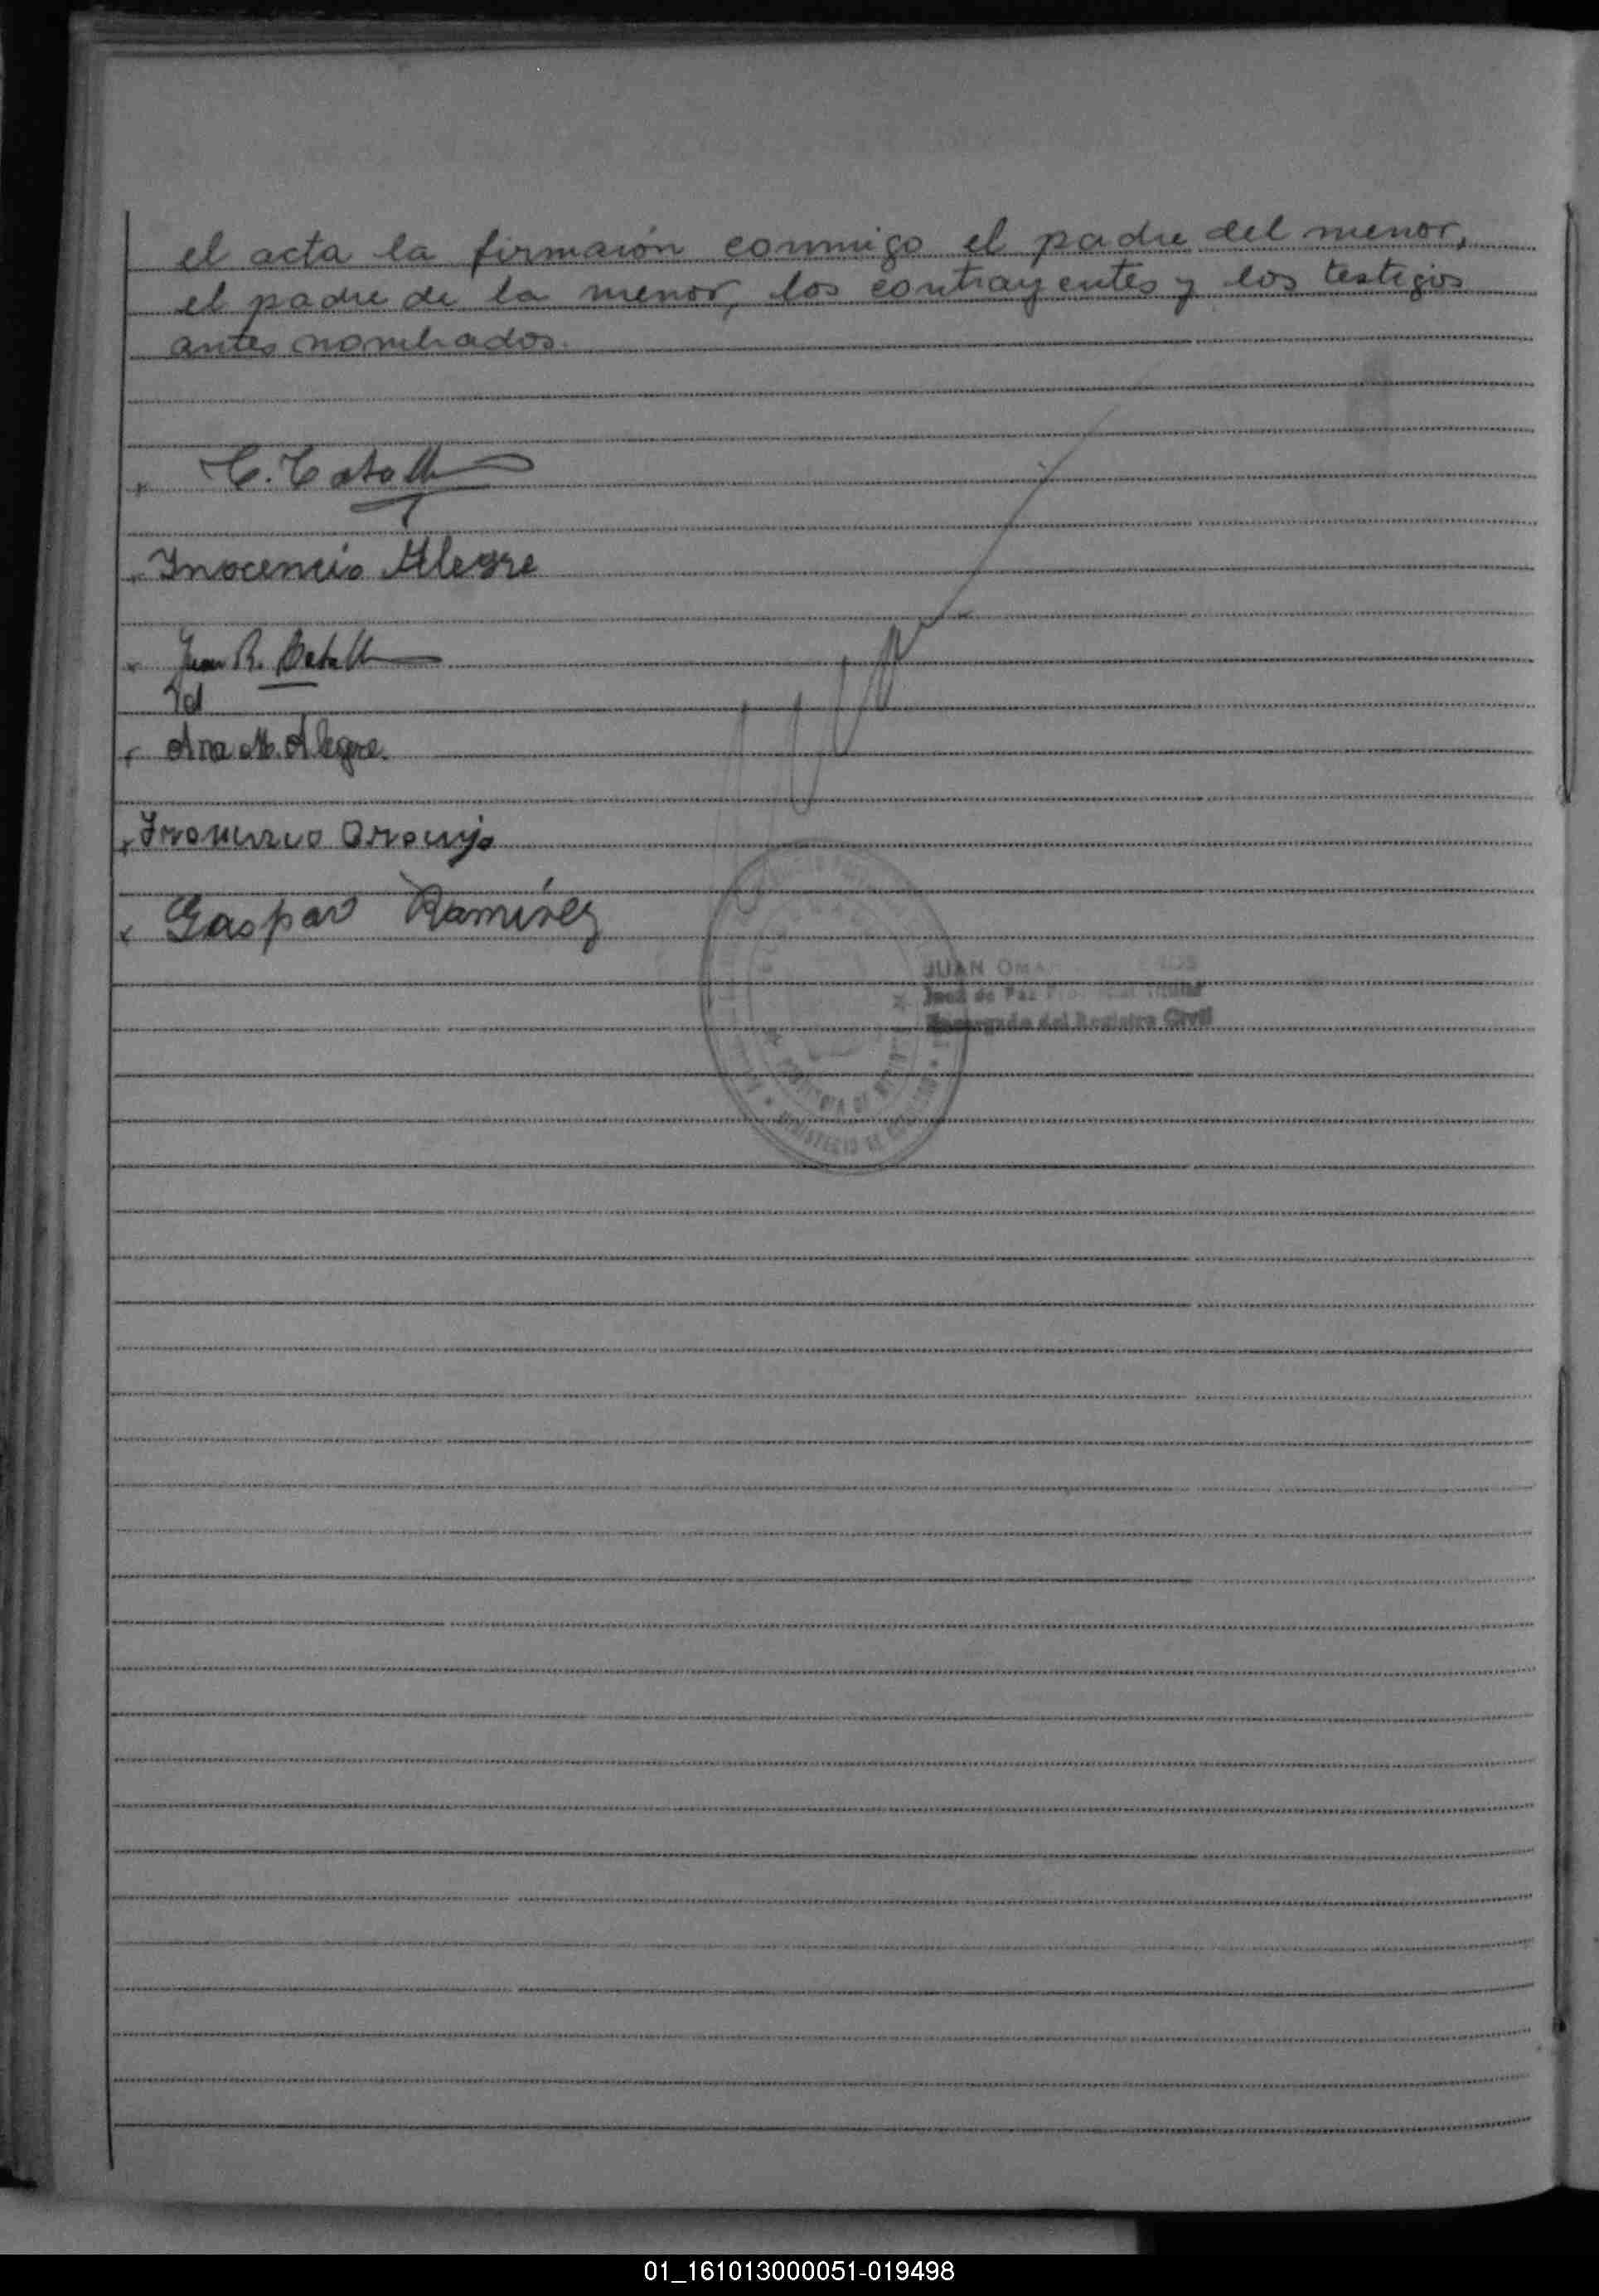 el acta la firmaron conmigo el padre del menor,
el padre de la menor, los contrayentes y los testigos
antes nombrados.
x
x Inocencio Alegre
x Juan R.
x Ana M. Alegre.
x Francisco Araujo
x Gaspar Ramírez
JUAN
Juez de Paz
Encargado del Registro Civil
MINISTERIO DE
01_161013000051-019498